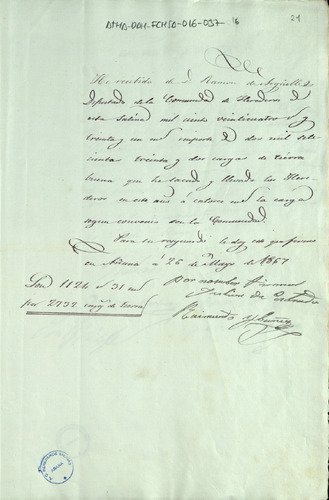 ATHA-DAH-FCHSA-016-037 16
21
He recibido de D. Ramon de Argüelles
Diputado de la Comunidad de Herederos de
esta Salina mil ciento veinticuatro rs y
treinta y un ms importe de dos mil sete-
cientas treinta y dos cargas de tierra
buena que ha sacado y llevado los Here-
deros en este año á catorce ms la carga
segun convenio con la Comunidad.
Para su resguardo le doy este que firmo
en Añana á 26 de Mayo de 1857
Son 1124 rs 31 ms
por 2732 cargs de tierra
por
de
Raimundo